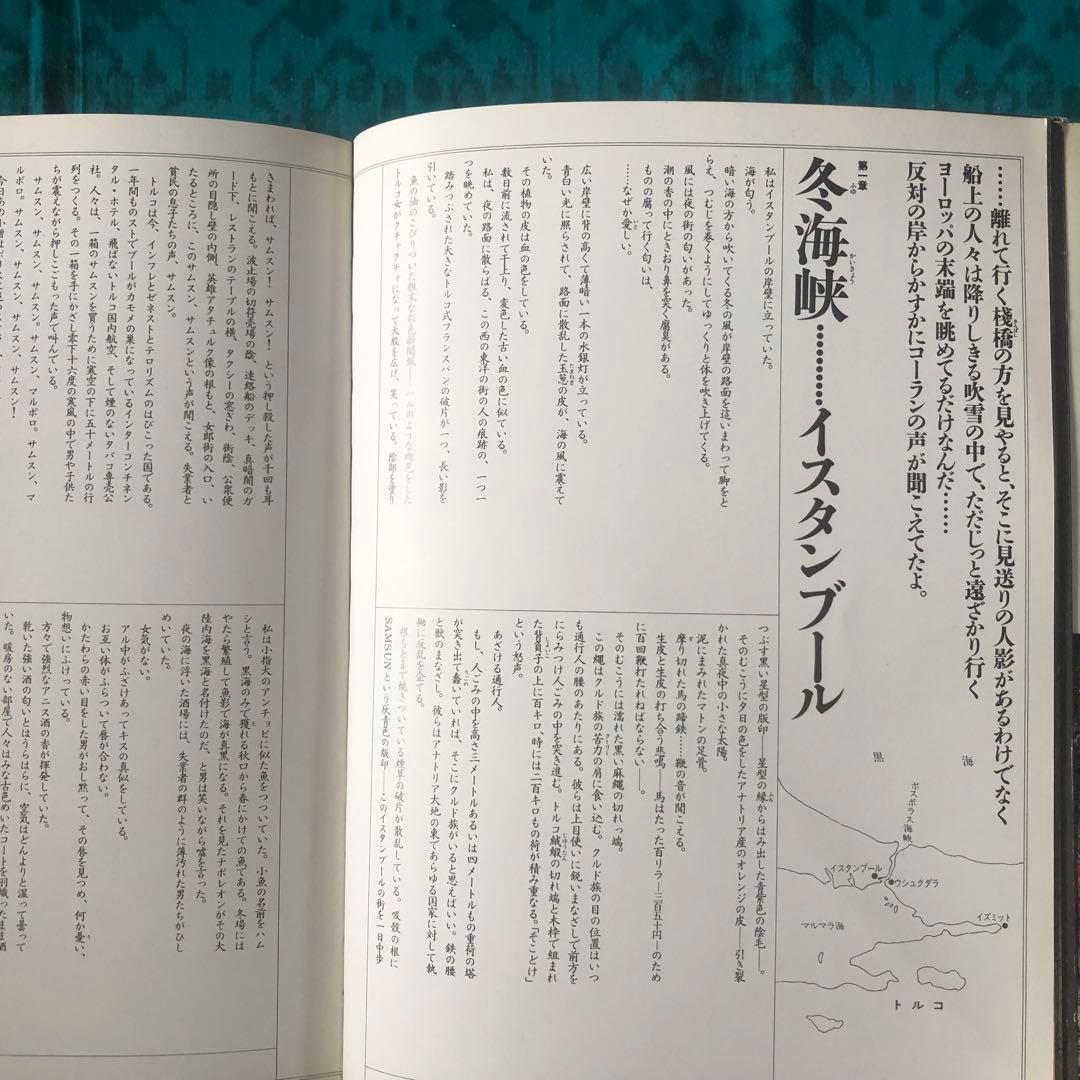 ……離れて行く棧橋の方を見やると、そこに見送りの人影があるわけでなく
船上の人々は降りしきる吹雪の中で、ただじっと遠ざかり行く
ヨーロッパの末端を眺めてるだけなんだ……
反対の岸からかすかにコーランの声が聞こえてたよ。
第一章
冬海峡…………イスタンブール
黒海
ボスポラス海峡
イスタンブール
ウシュクダラ
イズミット
マルマラ海
トルコ
私はイスタンブールの岸壁に立っていた。
海が匂う。
暗い海の方から吹いてくる冬の風が岸壁の路面を這いまわって脚をと
らえ、つむじを巻くようにしてゆっくりと体を吹き上げてくる。
風には夜の街の匂いがあった。
潮の香の中にときおり鼻を突く腐臭がある。
ものの腐って行く匂いは、
……なぜか愛しい。
広い岸壁に背の高くて薄暗い一本の水銀灯が立っている。
青白い光に照らされて、路面に散乱した玉葱の皮が、海の風に震えて
いた。
その植物の皮は血の色をしている。
数日前に流されて干上り、変色した古い血の色に似ている。
私は、夜の路面に散らばる、この西の東洋の街の人の痕跡の、一つ一
つを眺めていた。
踏みつぶされた大きなトルコ式フランスパンの破片が一つ、長い影を
引いている。
魚の油のこびりついた粗末な彩色新聞紙——ハムのような肉色をした
トルコ女がクチャクチャになって大股を広げ、笑っている。陰部を塗り
つぶす黒い星型の版印——星型の縁からはみ出した青紫色の陰毛——。
そのむこうに夕日の色をしたアナトリア産のオレンジの皮——引き裂
かれた真夜中の小さな太陽。
泥にまみれたマトンの足骨。
摩り切れた馬の蹄鉄……鞭の音が聞こえる。
生皮と生皮の打ち合う悲鳴——馬はたった百リラ——二百五十円——のため
に百回鞭打たれねばならない——。
そのむこうには濡れた黒い麻縄の切れっ端。
この縄はクルド族の苦力の肩に食い込む。クルド族の目の位置はいつ
も通行人の腰のあたりにある。彼らは上目使いに鋭いまなざしで前方を
にらみつけ人ごみの中を突き進む。トルコ絨緞の切れ端と木枠で組まれ
た背負子の上に百キロ、時には二百キロもの荷が積み重なる。「そこどけ」
という怒声。
あざける通行人。
もし、人ごみの中を高さ三メートルあるいは四メートルもの重荷の塔
が突き出て蠢いていれば、そこにクルド族がいると思えばいい。鉄の腰
と獣のまなざし。彼らはアナトリア大地の東であらゆる国家に対して執
拗に反乱を企てる。
根もとまで焼きついている煙草の破片が散乱している。吸殻の根に
SAMSUNという灰青色の版印——このイスタンブールの街を一日中歩
きまわれば、サムスン！　サムスン！　という押し殺した声が千回も耳
もとに聞こえる。波止場の切符売場の陰、連絡船のデッキ、真暗闇のガ
ード下、レストランのテーブルの横、タクシーの窓ぎわ、街陰、公衆便
所の目隠し壁の内側、英雄アタチュルク像の根もと、女郎街の入口、い
たるところに、このサムスン、サムスンという声が聞こえる。失業者と
貧民の息子たちの声、サムスン。
トルコは今、インフレとゼネストとテロリズムのはびこった国である。
一年間ものストでプールがカモメの巣になっているインターコンチネン
タル・ホテル、飛ばないトルコ国内航空、そして煙のないタバコ専売公
社。人々は、一箱のサムスンを買うために寒空の下に五十メートルの行
列をつくる。その一箱を手にかざし零下十六度の寒風の中で男や子供た
ちが震えながら押しここもった声で叫んでいる。
サムスン、サムスン、サムスン、サムスン、マルボロ。サムスン、マ
ルボロ。サムスン、サムスン、サムスン、サムスン！
私は小指大のアンチョビに似た魚をつついていた。小魚の名前をハム
シと言う。黒海のみで獲れる秋口から春にかけての魚である。冬場には
やたら繁殖して魚影で海が真黒になる。それを見たナポレオンがその大
陸内海を黒海と名付けたのだ、と男は笑いながら嘘を言った。
夜の海に浮いた酒場には、失業者の群のように薄汚れた男たちがひし
めいていた。
女気がない。
アル中がふざけあってキスの真似をしている。
お互い体がふらついて唇が合わない。
かたわらの赤い目をした男がおし黙って、その唇を見つめ、何か憂い、
物想いにふけっている。
方々で強烈なアニス酒の香が揮発していた。
乾いた強い酒の匂いとはうらはらに、空気はどんよりと湿って曇って
いた。暖房のない部屋で人々はみな古色めいたコートを羽織ったまま酒